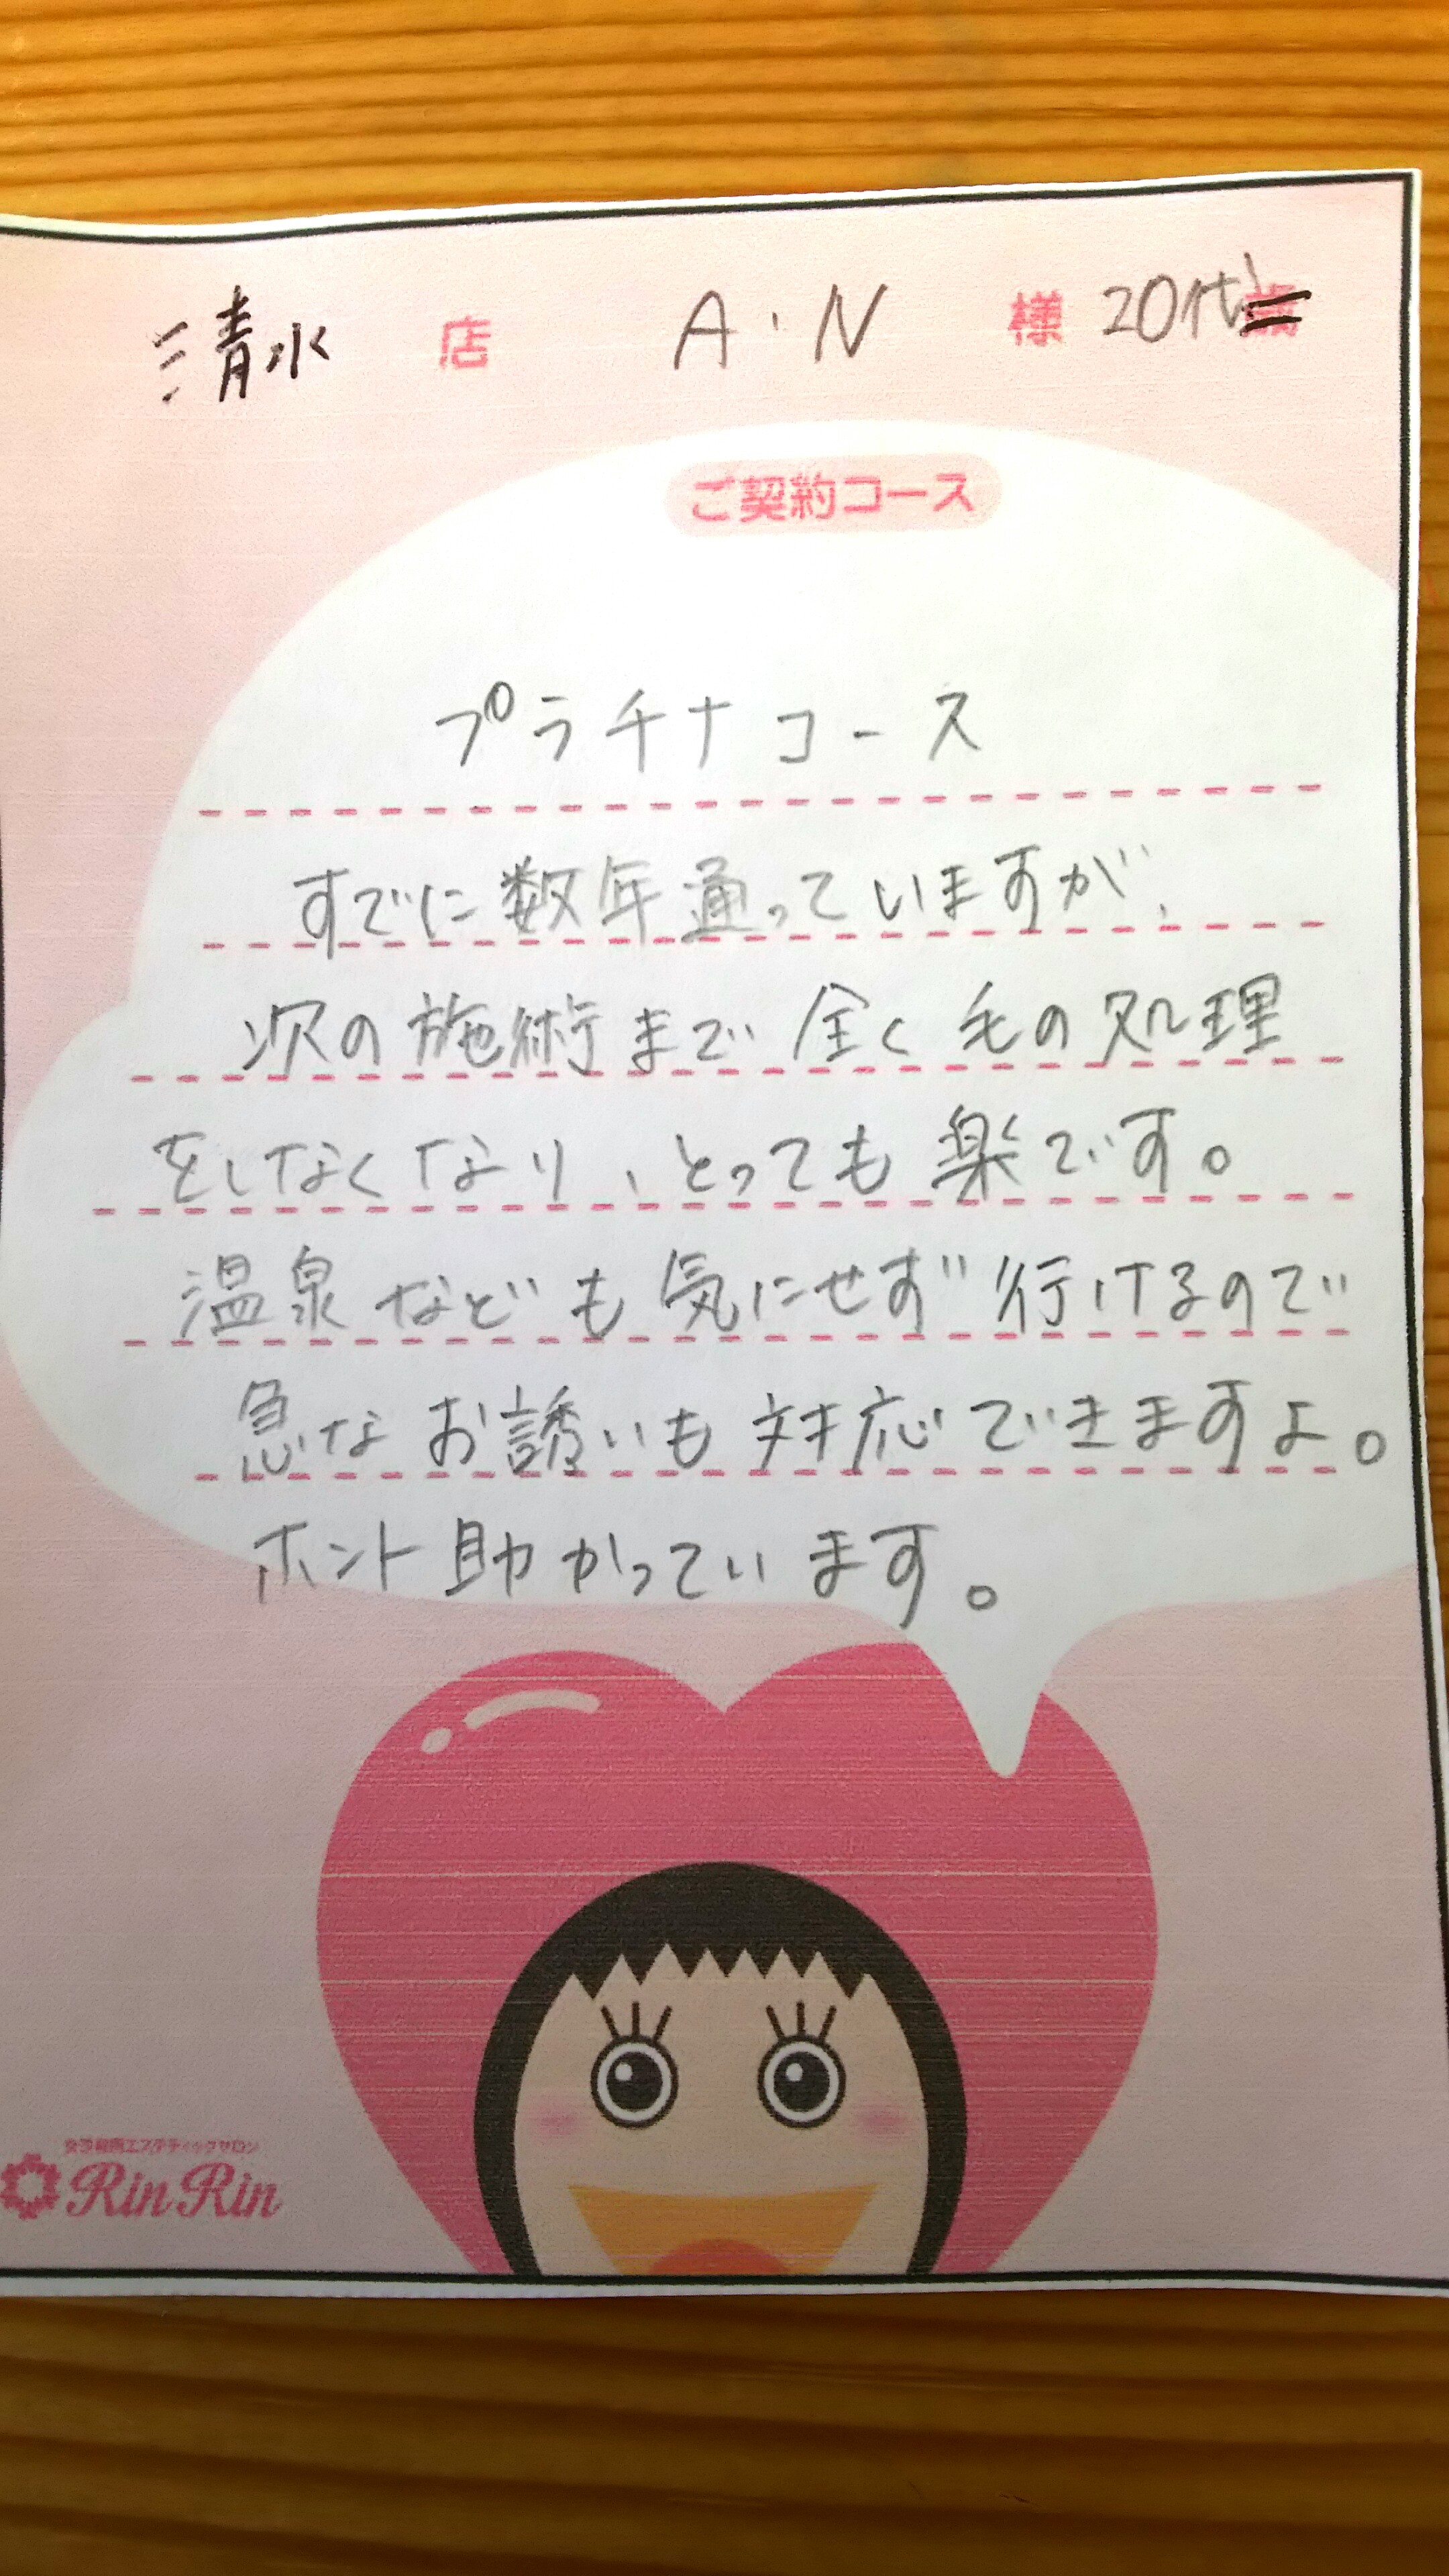 清水 店 A・N 様 20代
ご契約コース
プラチナコース
すでに数年通っていますが、
次の施術まで全く毛の処理
をしなくなり、とっても楽です。
温泉なども気にせず行けるので
急なお誘いも対応できますよ。
ホント助かっています。
女子専用エステティックサロン
RinRin